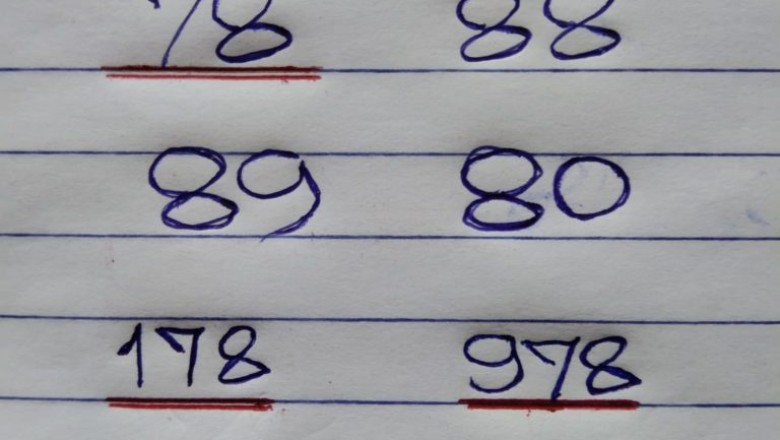 78 88
89 80
178 978